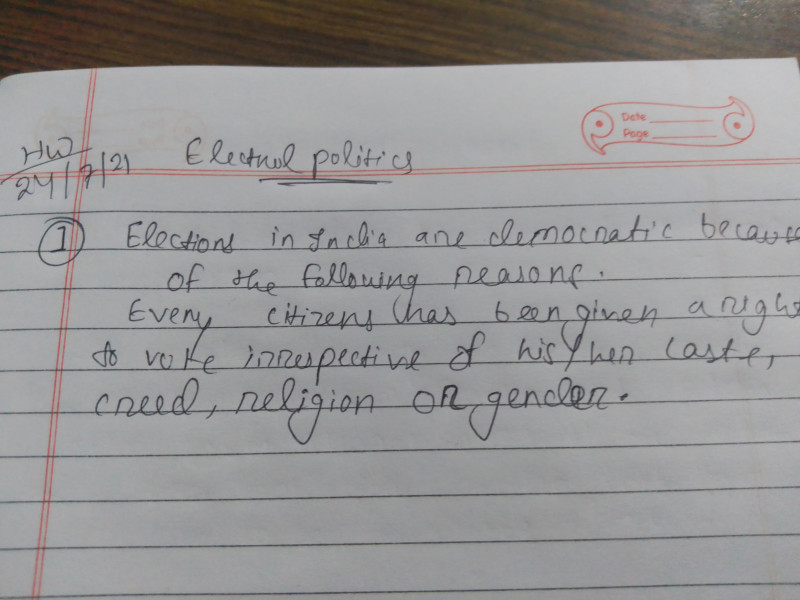 HW
24/7/21
Electrol politics
Date
Page
1 Elections in India are democratic because
of the following reasons.
Every citizens has been given a right
to vote irrespective of his/her caste,
creed, religion or gender.